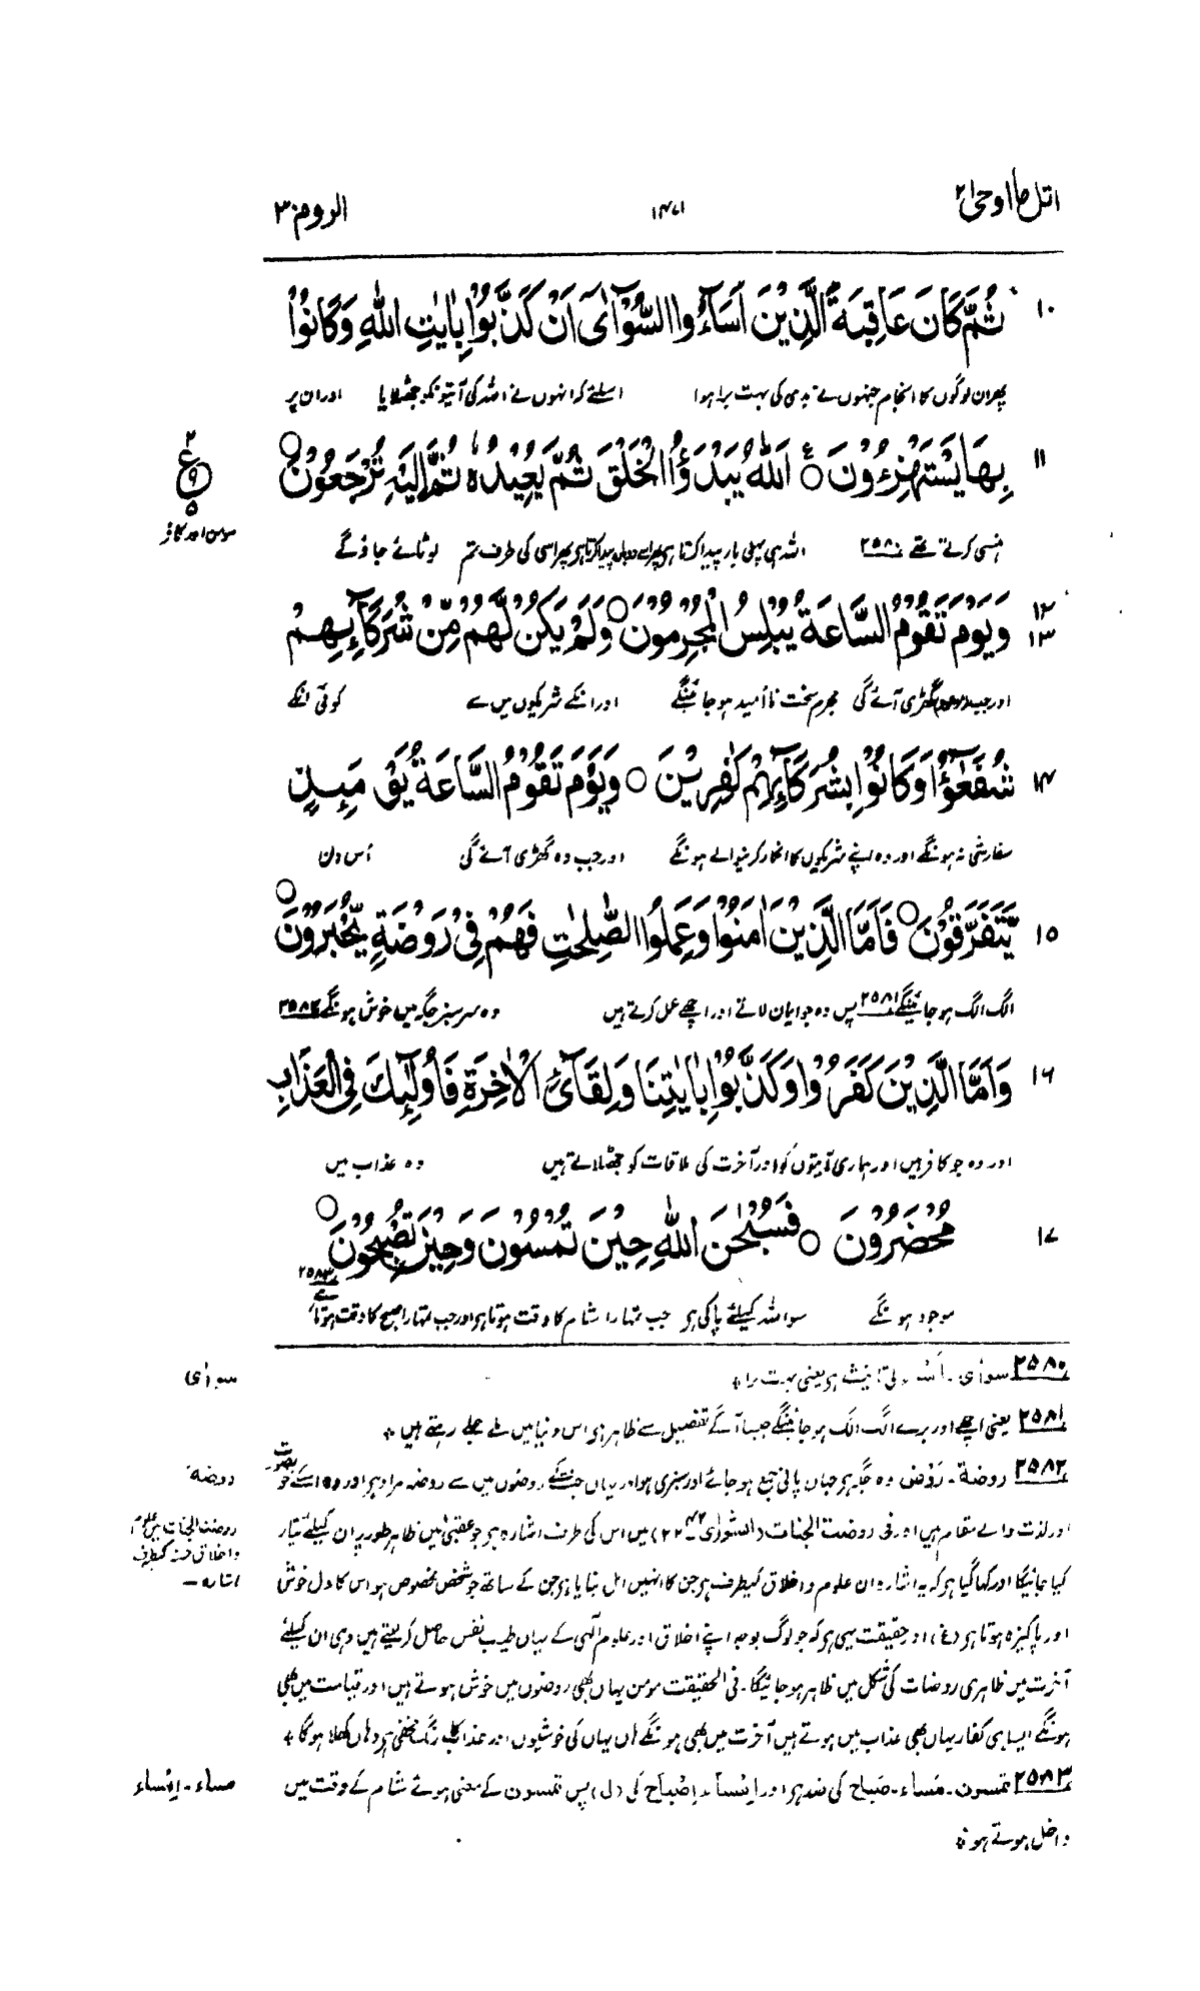 اتل ما اوحی ۲۱
۱۴۷۱
الروم ۳۰
۱۰ ثُمَّ كَانَ عَاقِبَةَ الَّذِيْنَ اَسَآءُوا السُّوْٓآٰى اَنْ كَذَّبُوْا بِاٰيٰتِ اللّٰهِ وَكَانُوْا
پھر ان لوگوں کا انجام جنہوں نے بدی کی بہت برا ہوا اسلئے کہ انہوں نے اللہ کی آیتونکو جھٹلایا اور ان پر
۱۱ بِهَا يَسْتَهْزِءُوْنَ ○ اَللّٰهُ يَبْدَؤُا الْخَلْقَ ثُمَّ يُعِيْدُهٗ ثُمَّ اِلَيْهِ تُرْجَعُوْنَ ○
ع
مومن اور کافر
ہنسی کرتے تھے ۲۵۸۰ اللہ ہی پہلی بار پیدا کرتا ہے پھر اسے دوبارہ پیدا کرتا ہے پھر اسی کی طرف تم لوٹائے جاؤگے
۱۲ ۱۳ وَيَوْمَ تَقُوْمُ السَّاعَةُ يُبْلِسُ الْمُجْرِمُوْنَ ○ وَلَمْ يَكُنْ لَّهُمْ مِّنْ شُرَكَآئِهِمْ
اور جب وہ گھڑی آئے گی مجرم سخت نا اُمید ہو جائینگے اور انکے شریکوں میں سے کوئی انکے
۱۴ شُفَعٰٓؤُا وَكَانُوْا بِشُرَكَآئِهِمْ كٰفِرِيْنَ ○ وَيَوْمَ تَقُوْمُ السَّاعَةُ يَوْمَئِذٍ
سفارشی نہ ہونگے اور وہ اپنے شریکوں کا انکار کرنیوالے ہونگے اور جب وہ گھڑی آئے گی اُس دن
۱۵ يَّتَفَرَّقُوْنَ ○ فَاَمَّا الَّذِيْنَ اٰمَنُوْا وَعَمِلُوا الصّٰلِحٰتِ فَهُمْ فِيْ رَوْضَةٍ يُّحْبَرُوْنَ ○
الگ الگ ہو جائینگے ۲۵۸۱ پس وہ جو ایمان لاتے اور اچھے عمل کرتے ہیں وہ سرسبز جگہ میں خوش ہونگے ۲۵۸۲
۱۶ وَاَمَّا الَّذِيْنَ كَفَرُوْا وَكَذَّبُوْا بِاٰيٰتِنَا وَلِقَآئِ الْاٰخِرَةِ فَاُولٰٓئِكَ فِى الْعَذَابِ
اور وہ جو کافر ہیں اور ہماری آیتوں کو اور آخرت کی ملاقات کو جھٹلاتے ہیں وہ عذاب میں
۱۷ مُحْضَرُوْنَ ○ فَسُبْحٰنَ اللّٰهِ حِيْنَ تُمْسُوْنَ وَحِيْنَ تُصْبِحُوْنَ ○
موجود ہونگے سو اللہ کیلئے پاکی ہو جب تمہارا شام کا وقت ہوتا ہو اور جب تمہارا صبح کا وقت ہوتا ہے ۲۵۸۳
۲۵۸۰ سوأی۔ اسوء کی تانیث ہو یعنی بہت برا ٭
سوأی
۲۵۸۱ یعنی اچھے اور برے الگ الگ ہو جائینگے جیسا آگے تفصیل سے ظاہر ہو اس دنیا میں ملے جلے رہتے ہیں ٭
۲۵۸۲ روضة۔ رَوْض وہ جگہ ہو جہاں پانی جمع ہو جائے اور سبزی ہو اور یہاں جنت کے روضوں میں سے روضہ مراد ہو اور وہ اسکے خوبصورت
روضة
اور لذت والے مقام ہیں اور فی روضٰت الجنات (الشورٰی ۴۲-۲۲) میں اس کی طرف اشارہ ہو جو عقبیٰ میں ظاہر طور پر ان کیلئے تیار
روضٰت الجنات میں علوم و اخلاق حسنہ کیطرف اشارہ —
کیا جائیگا اور کہا گیا ہو کہ یہ اشارہ ان علوم و اخلاق کیطرف ہو جن کا انہیں اہل بنایا ہو جن کے ساتھ جو شخص مخصوص ہو اس کا دل خوش
اور پاکیزہ ہوتا ہو (غ) اور حقیقت یہی ہو کہ جو لوگ بوجہ اپنے اخلاق اور علوم الٰہی کے یہاں طیب نفس حاصل کر لیتے ہیں وہی ان کیلئے
آخرت میں ظاہری روضات کی شکل میں ظاہر ہو جائیگا۔ فی الحقیقت مومن یہاں بھی روضوں میں خوش ہوتے ہیں اور قیامت میں بھی
ہونگے ایسا ہی کفار یہاں بھی عذاب میں ہوتے ہیں آخرت میں بھی ہونگے ہاں یہاں کی خوشیوں اور عذاب کا رنگ مخفی ہو وہاں کھلا ہوگا ٭
۲۵۸۳ تمسون۔ مَساء۔ صَباح کی ضد ہو اور اِمْساء۔ اِصْباح کی (ل) پس تمسون کے معنی ہوئے شام کے وقت میں
مساء۔ اِمساء
داخل ہوتے ہو ٭